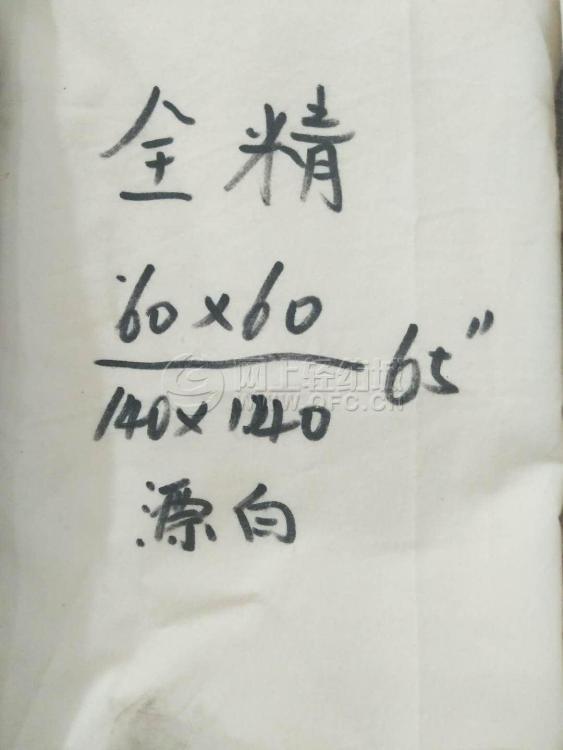 全精
60×60
65"
网上轻纺城
WWW.QFC.CN
140×140
漂白